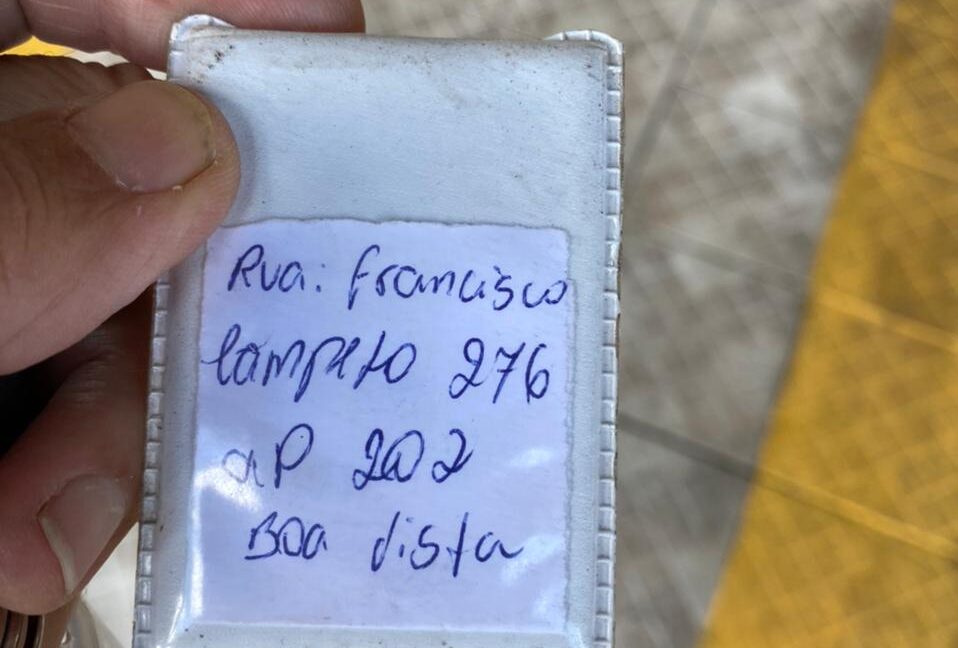 Rua: Francisco
lampeto 276
aP 202
Boa vista